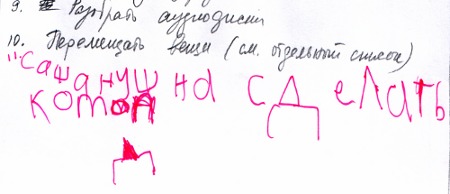 9. Разобрать аудиодиски
10. Перемещать вещи (см. отдельный список)
"сашануш на сд елать
д